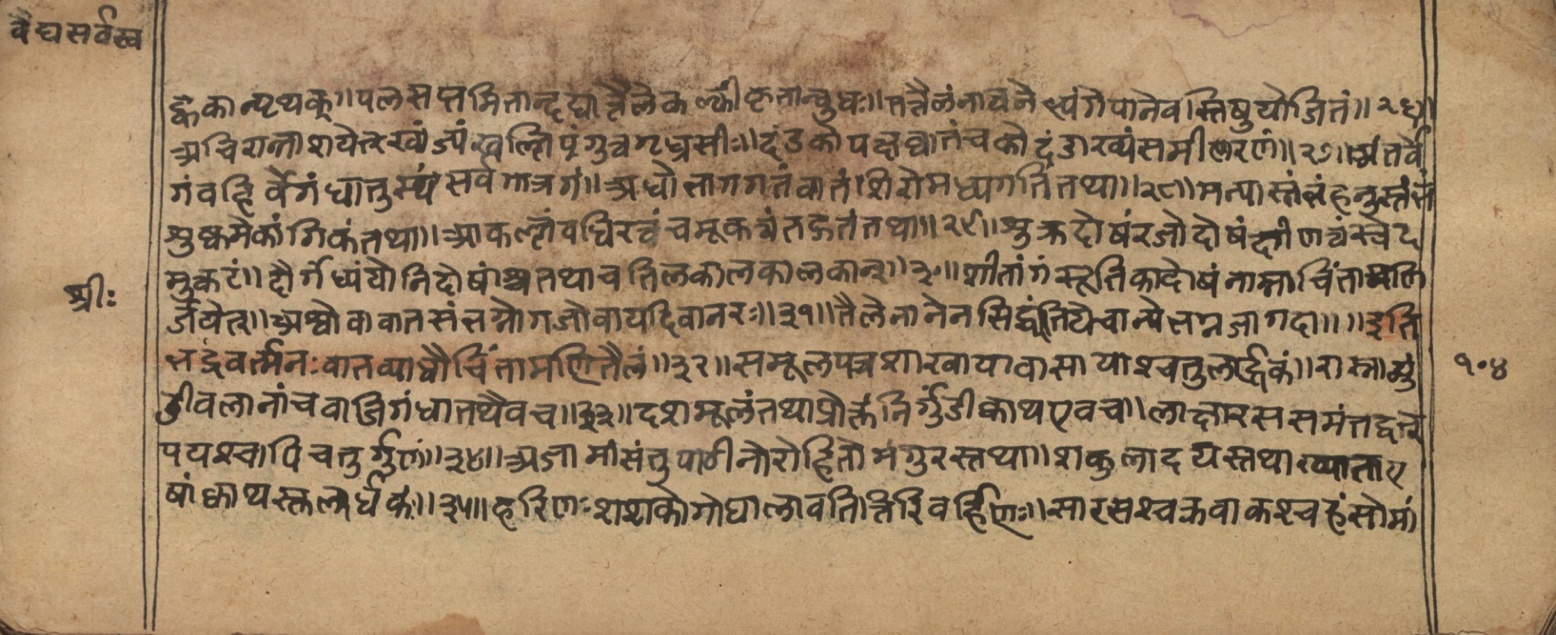 वैद्यसर्वस्व
द्विकान्पृथक्॥पलसप्तमितान्दद्यात्तैलेकल्कीकृतान्बुधः॥तत्तैलंनावनेभ्यंगेपानेवस्तिषुयोजितं॥२६॥
अचिरान्नाशयेत्खंज्यंखल्लिपंगुत्वगृध्रसीः॥दंडकोपक्षवातंचकोदंडाख्यंसमीरणं॥२७॥अंतर्वे
गंवहिर्वेगंधातुस्थंसर्वगात्रगं॥अधोभागगतंवातंशिरोमध्यगतिंतथा॥२८॥मन्यास्तंभंहनुस्तंभं
शुष्कमेकांगिकंतथा॥आकल्लत्वंवधिरत्वंचमूकत्वंतद्गतंतथा॥२९॥शुक्रदोषंरजोदोषंक्षीणत्वंस्वेद
मुकटं॥दौर्गंध्यंयोनिदोषांश्चतथाचतिलकालकालकान्॥३०॥शीतांगंसूतिकादोषंनाम्नाचिंतामणि
र्जयेत्॥अश्वोवावातसंभग्नोगजोवायदिवानरः॥३१॥तैलेनानेनसिद्ध्यंतियेचान्येभग्नजागदा॥॥इति
भद्रवर्त्मनःवातव्याधौचिंतामणितैलं॥३२॥समूलपत्रशाखायावासायाश्चतुलार्द्धकं॥रास्नाशुं
ठीवलानांचवाजिगंधातथैवच॥३३॥दशमूलंतथाप्रोक्तंनिर्गुंडीक्वाथएवच॥लाक्षारससमंतद्वत्
पयश्चापिचतुर्गुणं॥३४॥अजामांसंतुपाठीनोरोहितोमंगुरस्तथा॥शकुलादयस्तथाख्याताए
षांक्वाथस्तुलार्धकः॥३५॥हरिणःशशकोगोधालावतित्तिरिवर्हिणः॥सारसश्चक्रवाकश्चहंसोमां
श्रीः
१०४